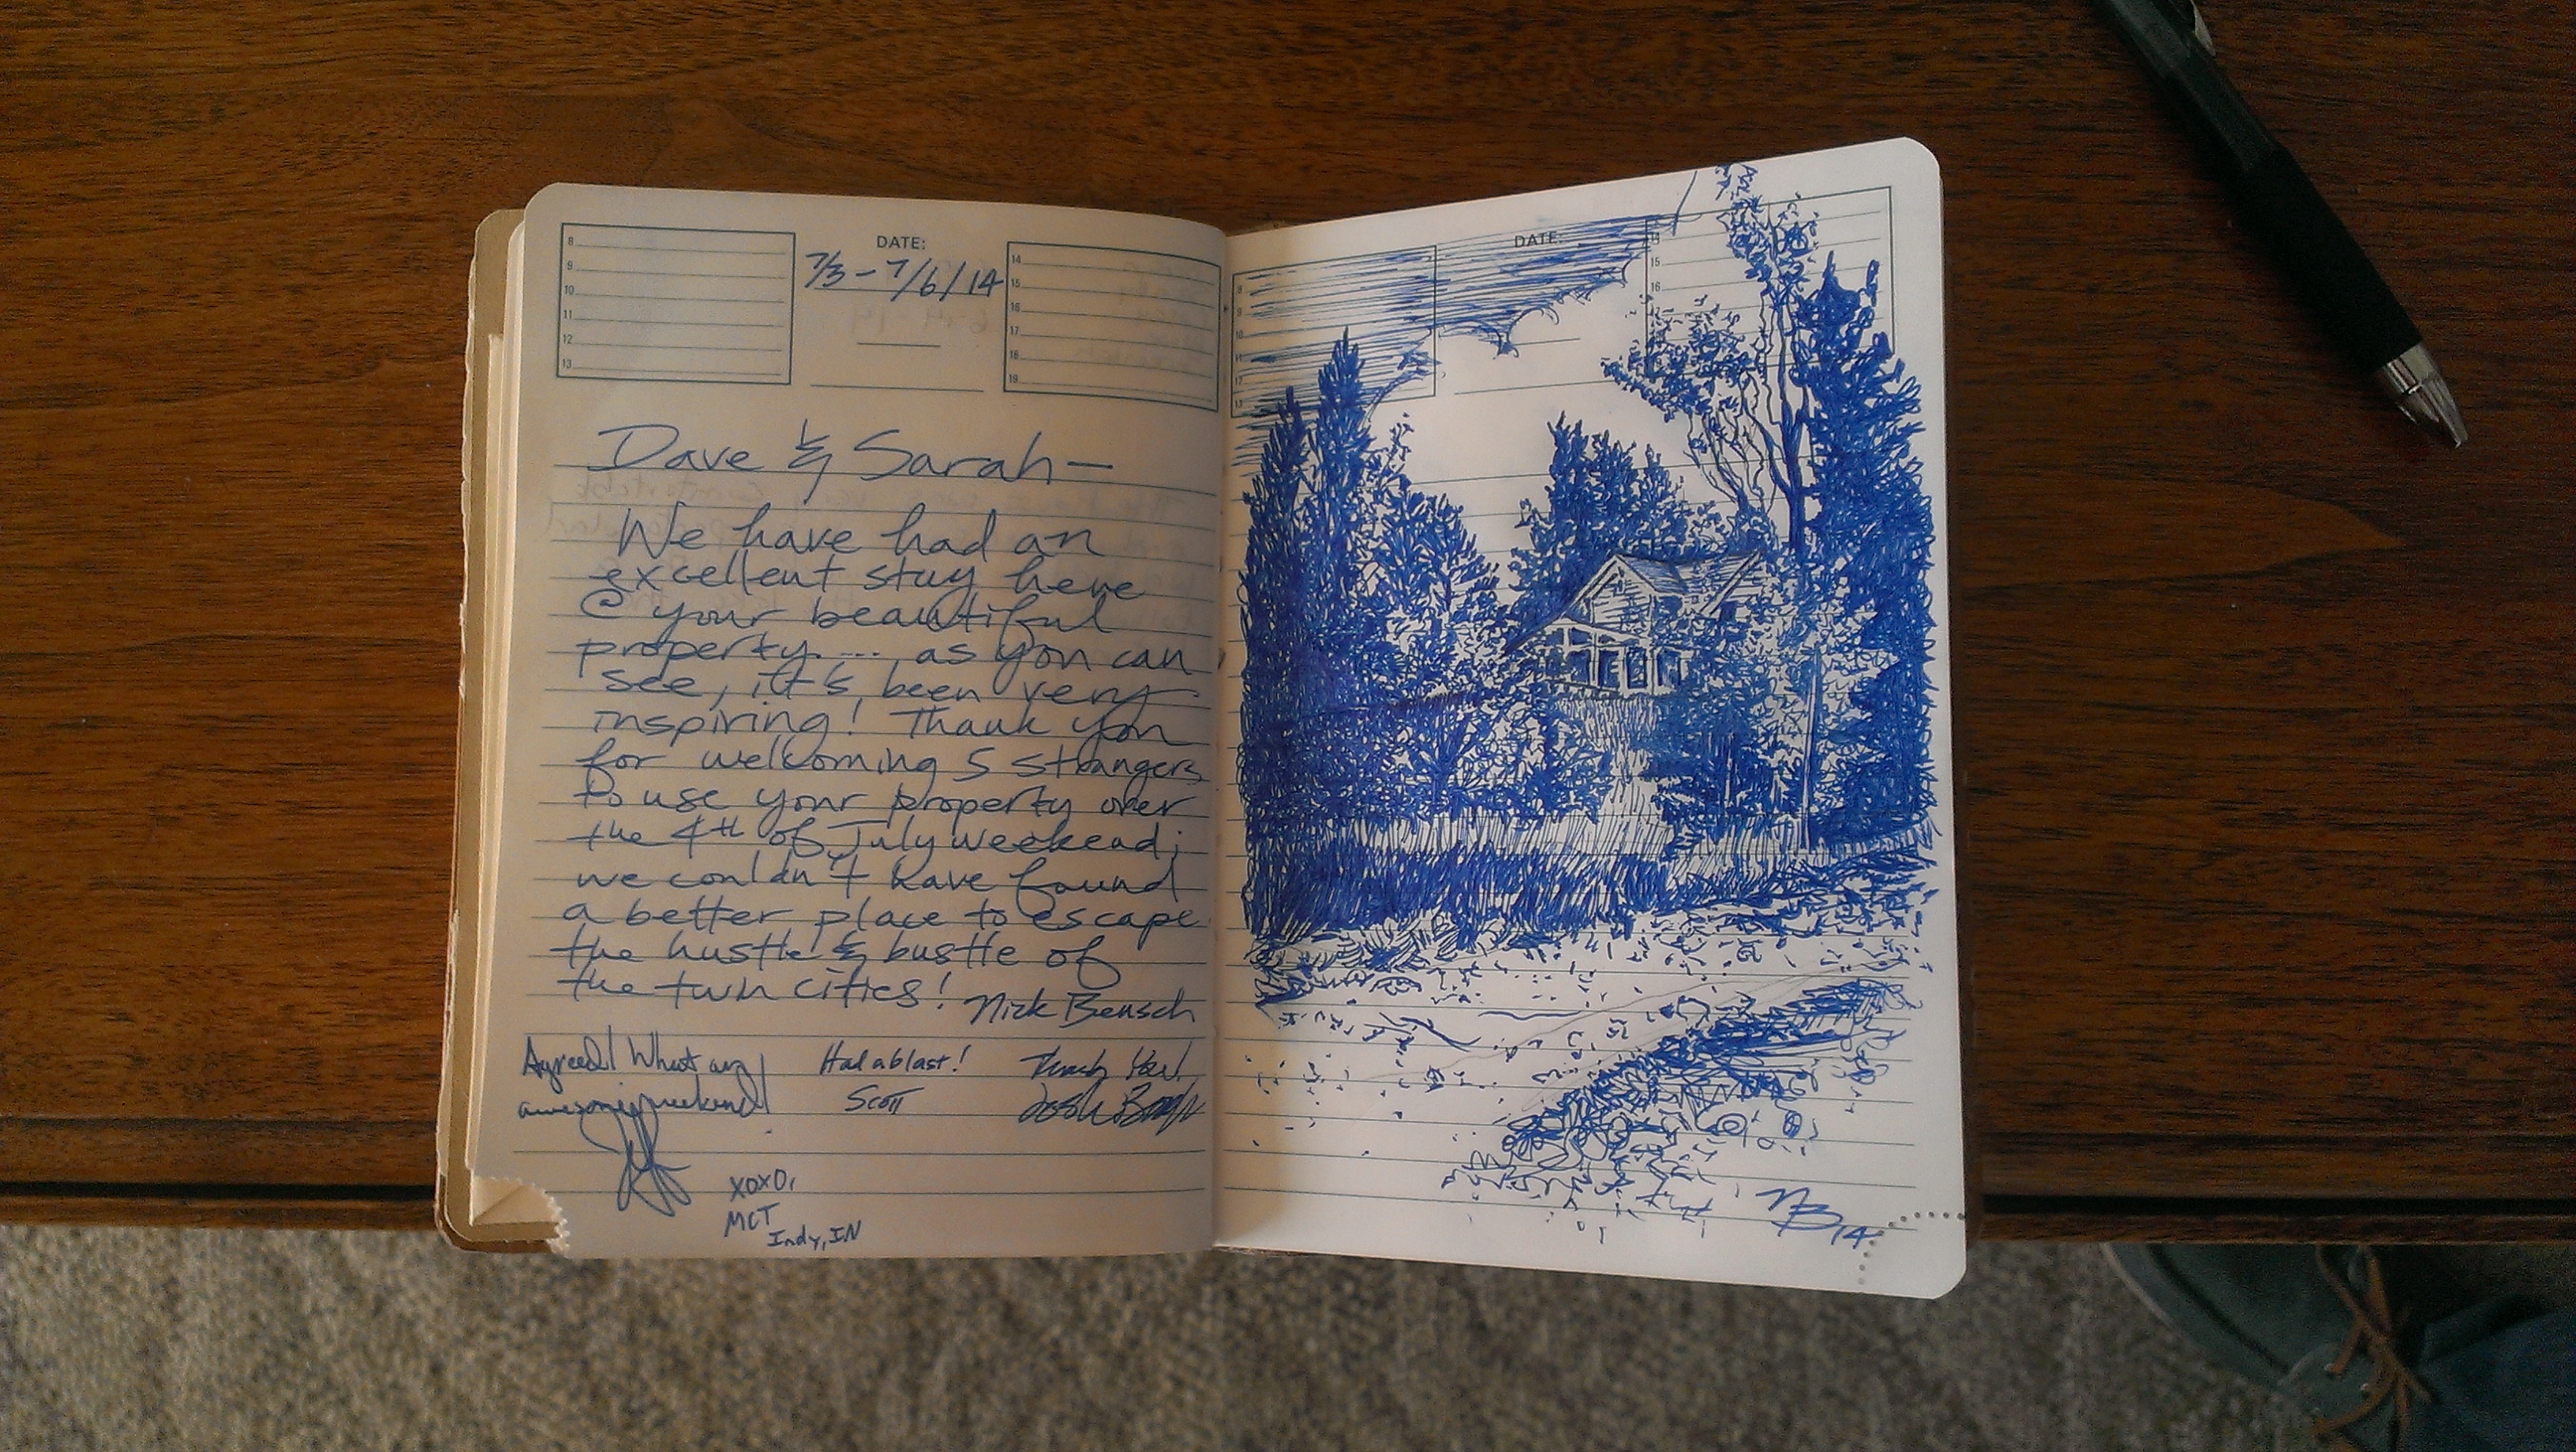 DATE:
7/3 - 7/6/14
8
9
10
11
12
13
14
15
16
17
18
19
Dave & Sarah —
We have had an
excellent stay here
@ your beautiful
property...., as you can
see, it's been very
inspiring! Thank you
for welcoming 5 strangers
to use your property over
the 4th of July weekend;
we couldn't have found
a better place to escape
the hustle & bustle of
the twin cities!
Nick Bensch
Agreed! What an
awesome weekend!
Had a blast!
Scott
Thank You!
Josh
XOXO,
MCT
Indy, IN
DATE:
8
9
10
11
12
13
14
15
16
NB 14